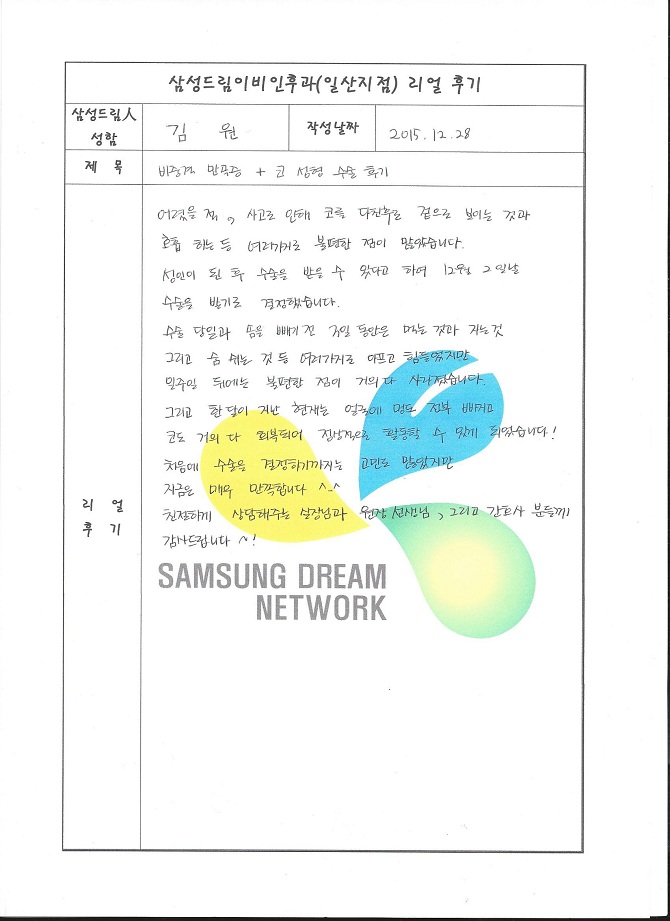 삼성드림이비인후과(일산지점) 리얼 후기
삼성드림人
성함
김 원
작성날짜
2015.12.28
제 목
비중격 만곡증 + 코 성형 수술 후기
어렸을 적, 사고로 인해 코를 다친후로 겉으로 보이는 것과
호흡 하는 등 여러가지로 불편한 점이 많았습니다.
성인이 된 후 수술을 받을 수 있다고 하여 12월 2일날
수술을 받기로 결정했습니다.
수술 당일과 솜을 빼기 전 3일 동안은 먹는 것과 자는것
그리고 숨 쉬는 것 등 여러가지로 아프고 힘들었지만
일주일 뒤에는 불편한 점이 거의다 사라졌습니다.
그리고 한달이 지난 현재는 얼굴에 멍도 전부 빠지고
코도 거의 다 회복되어 정상적으로 활동할 수 있게 되었습니다!
처음에 수술을 결정하기까지는 고민도 많았지만
지금은 매우 만족합니다 ^-^
친절하게 상담해주는 실장님과 원장선생님, 그리고 간호사 분들께
감사드립니다 ~!
리 얼
후 기
SAMSUNG DREAM
NETWORK